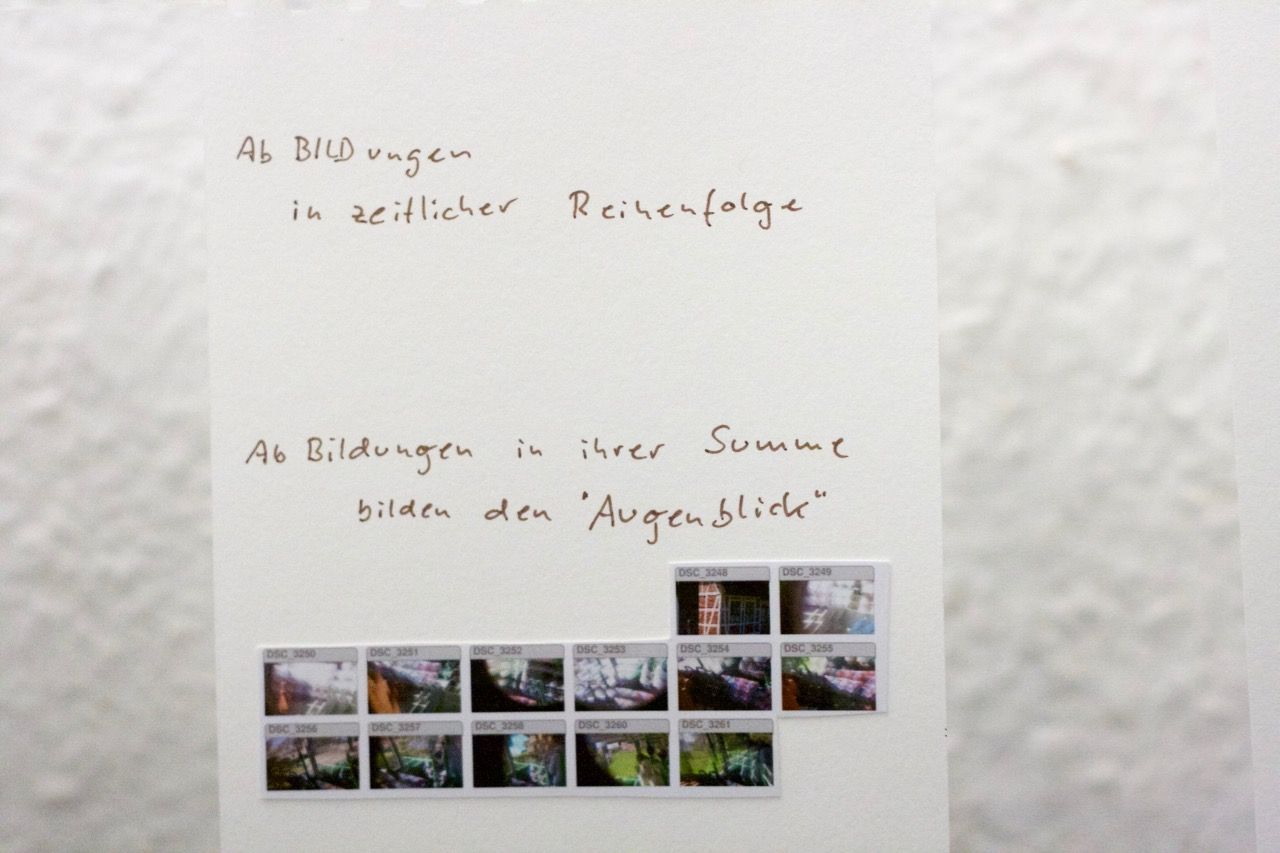 Ab BILDungen
in zeitlicher Reihenfolge
Ab Bildungen in ihrer Summe
bilden den "Augenblick"
DSC_3248 DSC_3249
DSC_3250 DSC_3251 DSC_3252 DSC_3253 DSC_3254 DSC_3255
DSC_3256 DSC_3257 DSC_3258 DSC_3260 DSC_3261